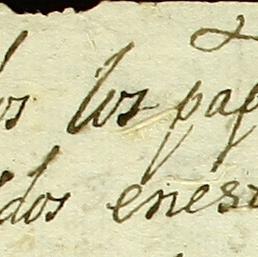 os los pap
dos enes